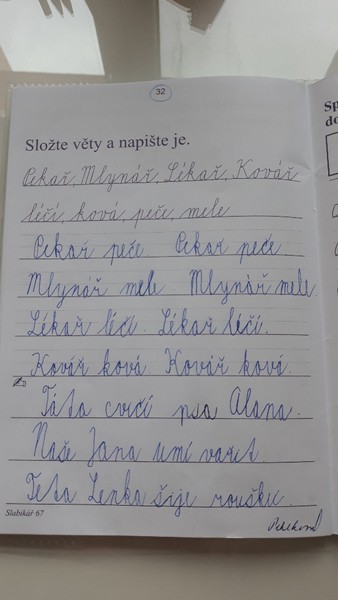 32
Složte věty a napište je.
Pekař, Mlynář, Lékař, Kovář
léčí, ková, peče, mele
Pekař peče. Pekař peče.
Mlynář mele. Mlynář mele.
Lékař léčí. Lékař léčí.
Kovář ková. Kovář ková.
Táta cvičí psa Alana.
Naše Jana umí vařit.
Teta Lenka šije roušku.
Slabikář 67
Sp
do